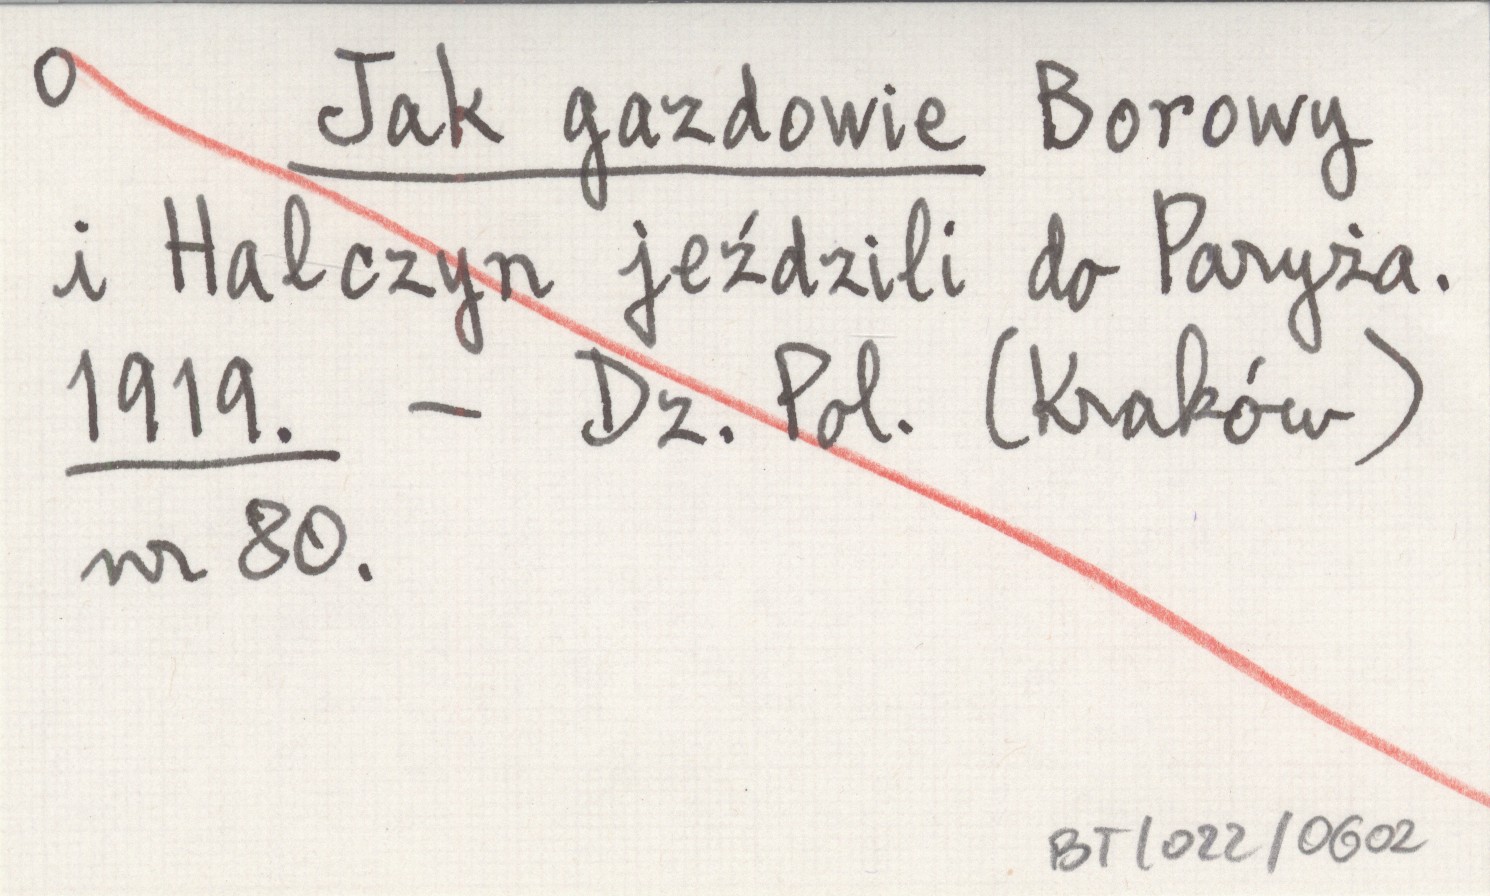 O Jak gazdowie Borowy
i Halczyn jeździli do Paryża.
1919. – Dz. Pol. (Kraków)
nr 80.
BT/022/0602